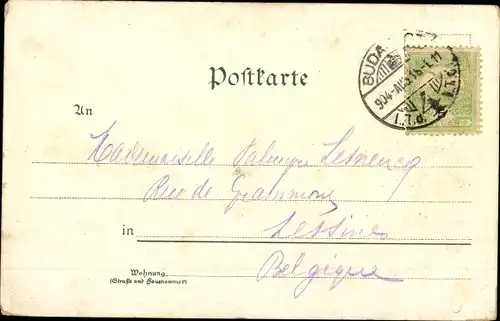 BUDA
904 AUG
Postkarte
An
Mademoiselle
Rue de Grammont
in Lessines
Belgique
Wohnung
(Straße und Hausnummer)